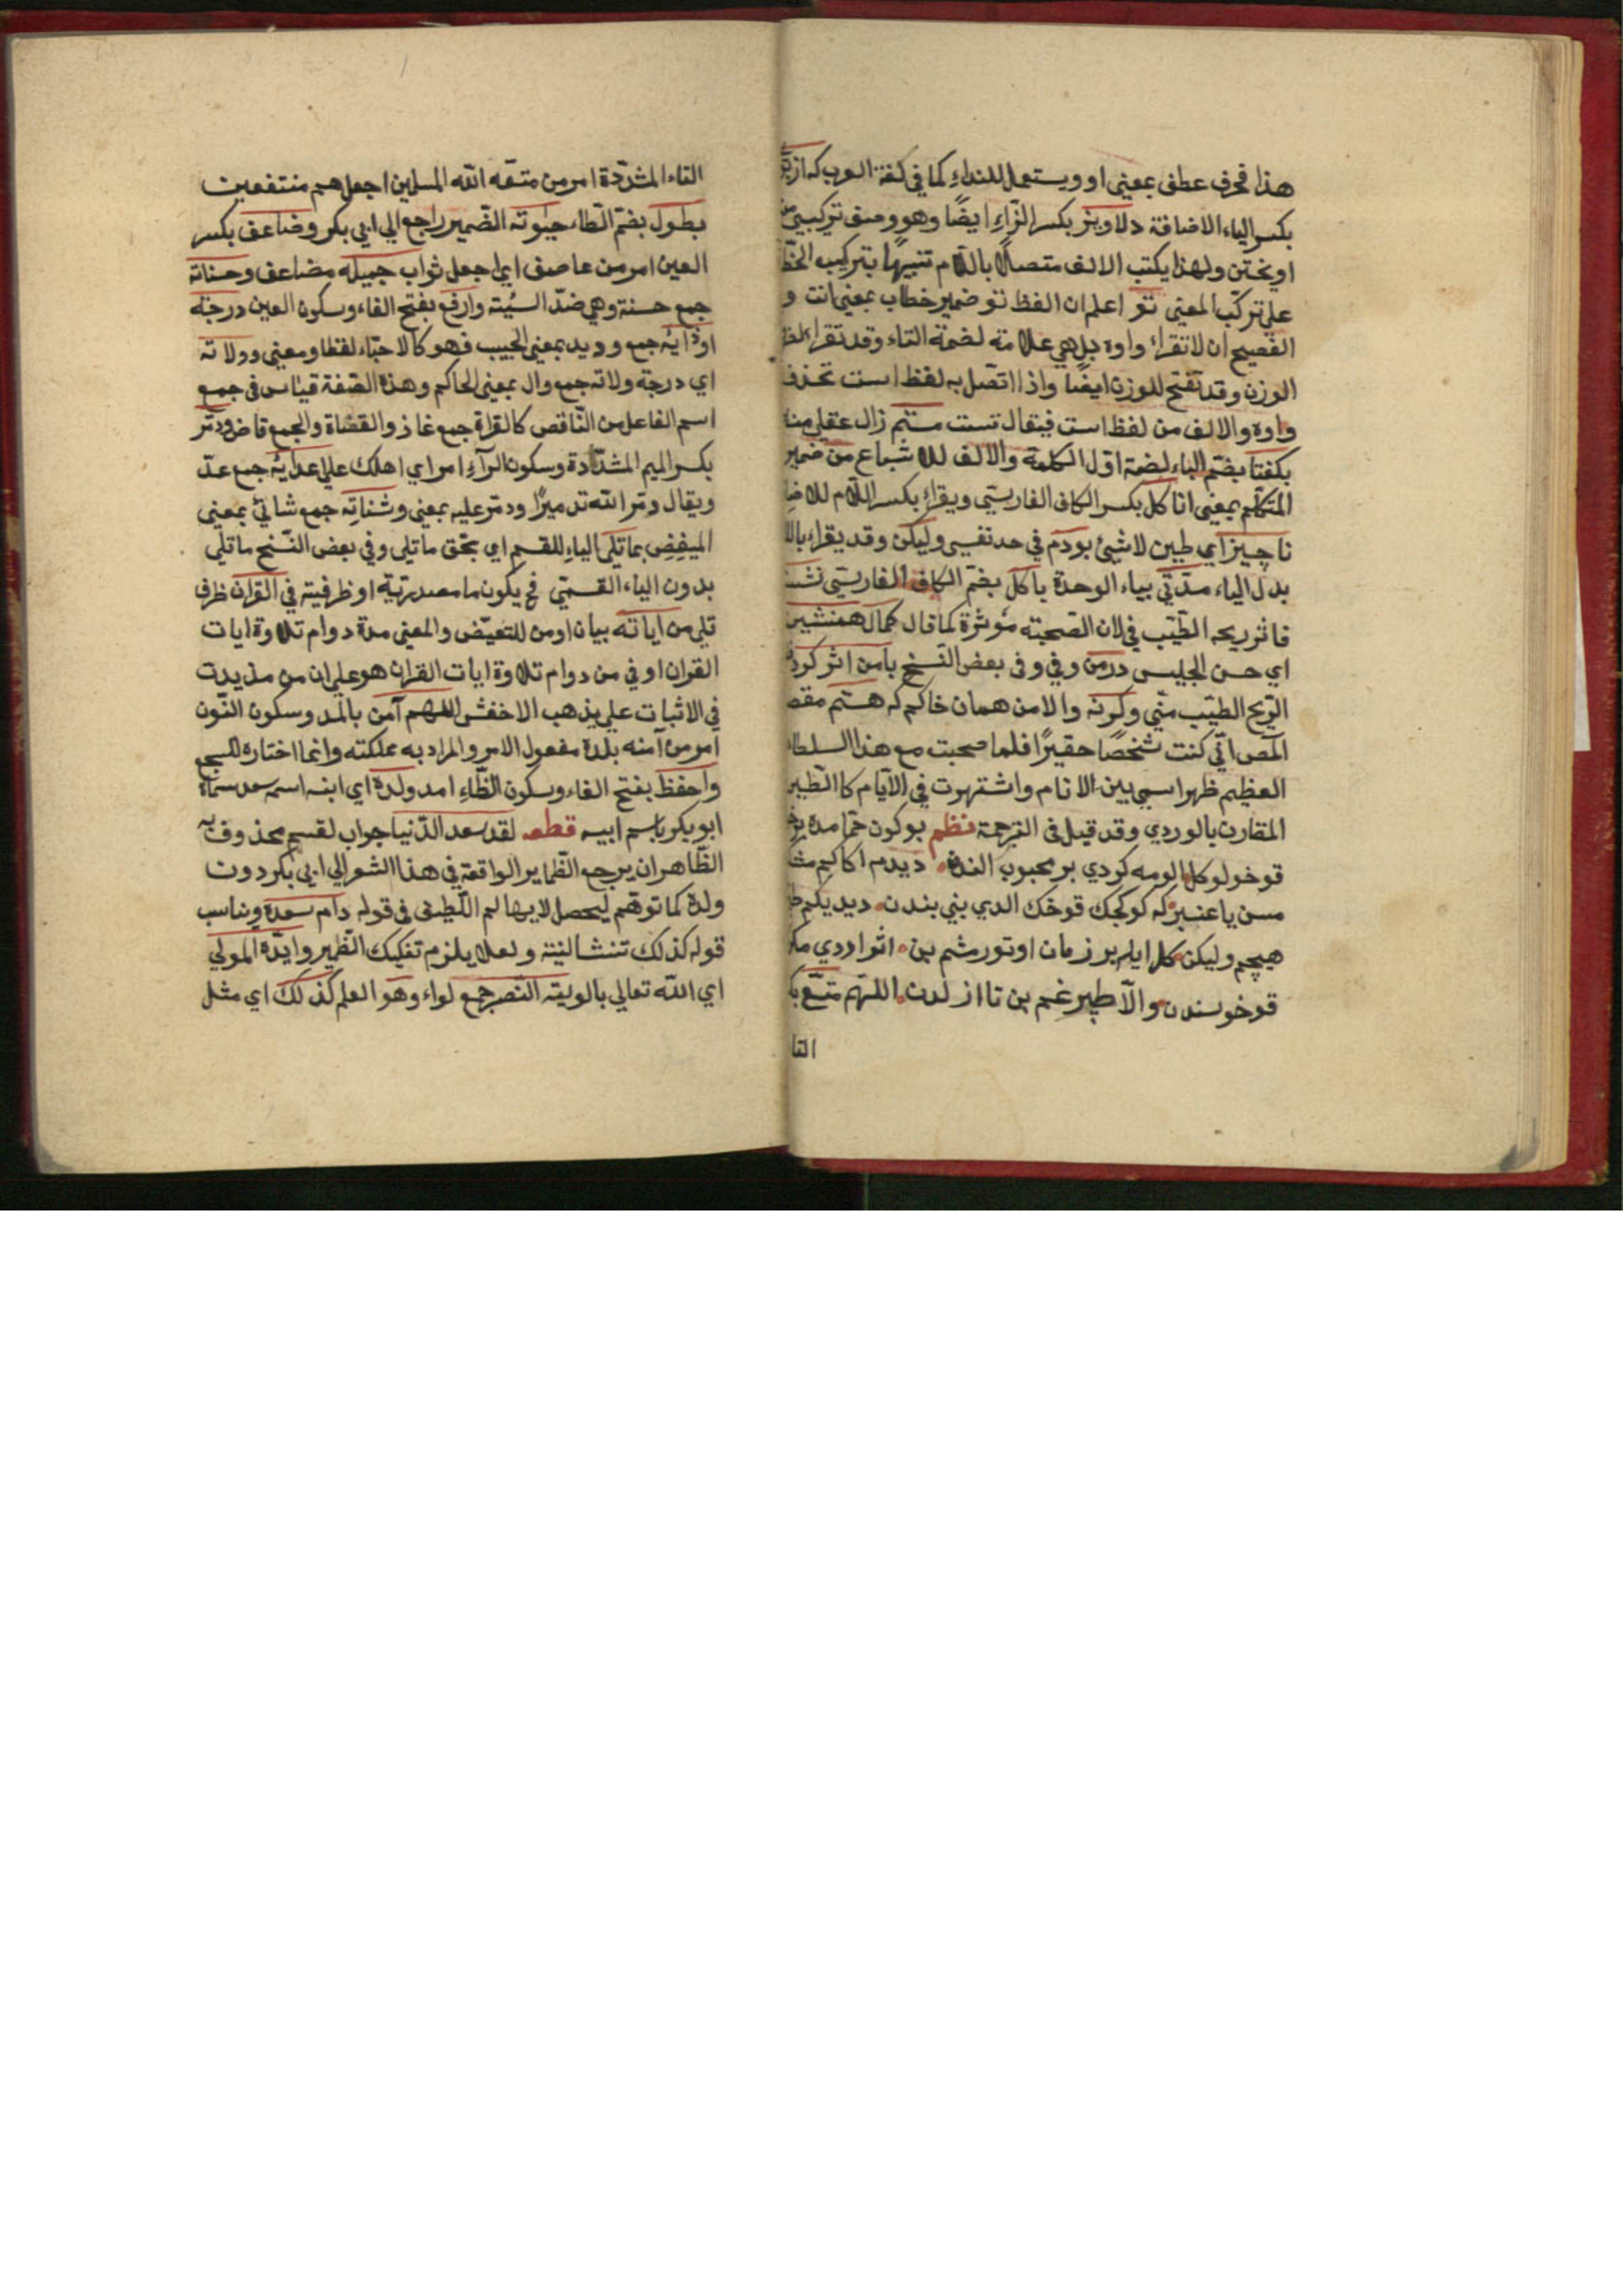 هذا فحرف عطف بمعنى او ويستعمل للنداء كما في لغة العرب كه از
بكسر الياء الاضافة دلاويز بكسر الزاء ايضًا وهو وصف تركيبي من
اويختن ولهذا يكتب الالف متصلًا باللام تنبيهًا بتركيب الخط
على تركب المعنى تو اعلم ان الفظ تو ضمير خطاب بمعنى انت و
الفصيح ان لا تقراء واوه بل هي علامة لضمة التاء وقد تقراء
الوزن وقد تفتح للوزن ايضًا واذا اتصل به لفظ است تحذف
واوه والالف من لفظ است فيقال تست مستم زال عقلى منه
بكفتا بضم الباء لضمة اول الكلمة والالف للاشباع من ضمير
المتكلم بمعنى انا كل بكسر الكاف الفارستي ويقراء بكسر اللام
ناچيز اي طين لا شيئ بودم في حد نفسى وليكن وقد يقراء
بدل الياء مدتي بياء الوحدة با كل بضم الكاف الفارستي
فاثر ريحه الطيب في لان الصحبته مؤثرة كما قال كمال همنشين
اي حسن الجليس درمن وفي وفى بعض النسخ با من اثر كرد
الريح الطيب منى وكرنه والا من همان خاكم كه هستم
اني كنت شخصًا حقيرًا فلما صحبت مع هذا السلطا
العظيم ظهر اسمى بين الانام واشتهرت في الايام كا الطبر
المقارن بالوردي وقد قيل فى الترجمة نظم بو كون حمامده
قوخولو كل الومه كردي بر محبوب الندن ديدم اكا كم
مسن يا عنبر كه كوكجك قوخك الدي بني بندن ديديكم
هيچم وليكن كل ايله بر زمان اوتورمشم بن اثر اردي
قوخوسندن والا طپر غم بن تا ازلدن اللهم متع
التا
التاء المشددة امر من متعه الله المسلمين اجعلهم منتفعين
بطول بضم الطاء حيوته الضمير راجع الي ابي بكر وضاعف بكسر
العين امر من عاصف اي اجعل ثواب جميله مضاعف وحسناته
جمع حسنة وهي ضد السيئة وارفع بفتح الفاء وسكون العين درجة
اودائه جمع وديد بمعنى الحبيب فهو كالاحباء لفظا ومعنى وولاته
اي درجة ولاته جمع وال بمعنى الحاكم وهذه الصفة قياس فى جمع
اسم الفاعل من الناقص كالقراة جمع غاز والقضاة والجمع قاض ودمر
بكسر الميم المشددة وسكون الراء امر اي اهلك على اعدائه جمع عدّ
ويقال دمر الله تدميرًا ودمر عليه بمعنى وشناته جمع شانئ بمعنى
المبغض بما تلى الياء للقسم اي بحق ما تلى وفي بعض النسخ ما تلى
بدون الياء القسمتي فح يكون ما مصدرتية او ظرفيته في القران ظرف
تلى من اياته بيان او من للتعيض والمعنى مدة دوام تلاوة ايات
القران او في من دوام تلاوة ايات القران هو على ان من مزيدت
في الاثبات على يذهب الاخفش اللهم آمن بالمد وسكون النون
امر من آمنه بلده مفعول الامر والمراد به مملكته وانما اختاره للسجع
واحفظ بفتح الفاء وسكون الظاء امد ولده اي ابنه اسمه سعد سماه
ابو بكر باسم ابيه قطعه لقد سعد الدنيا جواب لقسم محذوف به
الظاهر ان يرجع الظماير الواقعة في هذا الشعر الي ابي بكر دون
ولده كما توهم ليحصل لايهالم اللطيف فى قوله دام سعده ويناسب
قوله كذلك تنشا لينة ولعلا يلزم تفكيك الظمير وايده المولي
اي الله تعالي بالوية النصر جمع لواء وهو العلم كذلك اي مثل